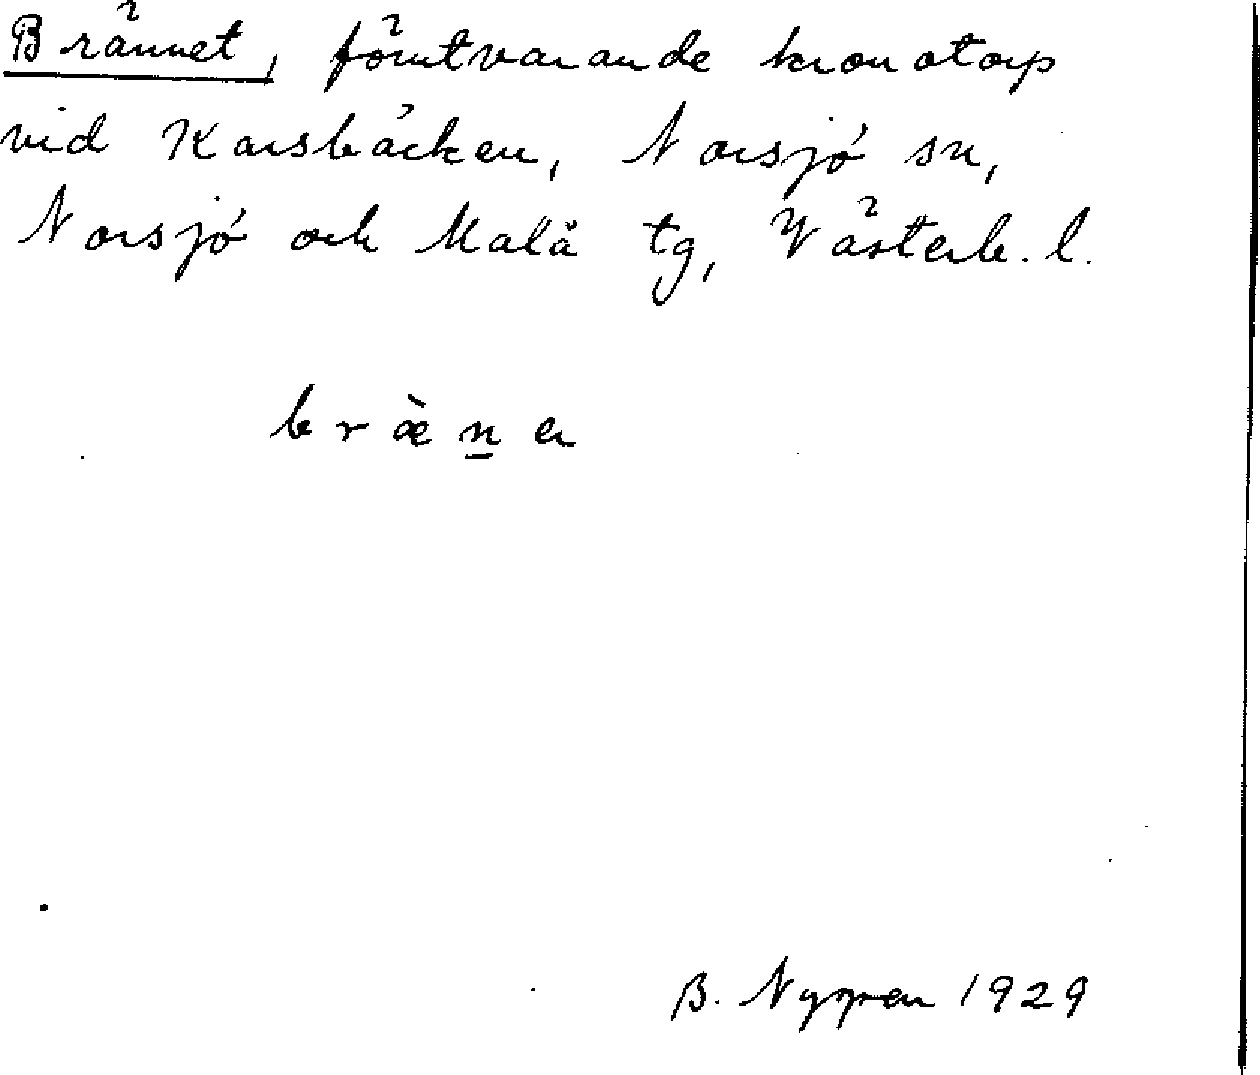 Brännet, förutvarande kronotorp
vid Karsbäcken, Norsjö sn,
Norsjö och Malå tg, Västerb. l.
bræ̀n̲a
B. Nygren 1929